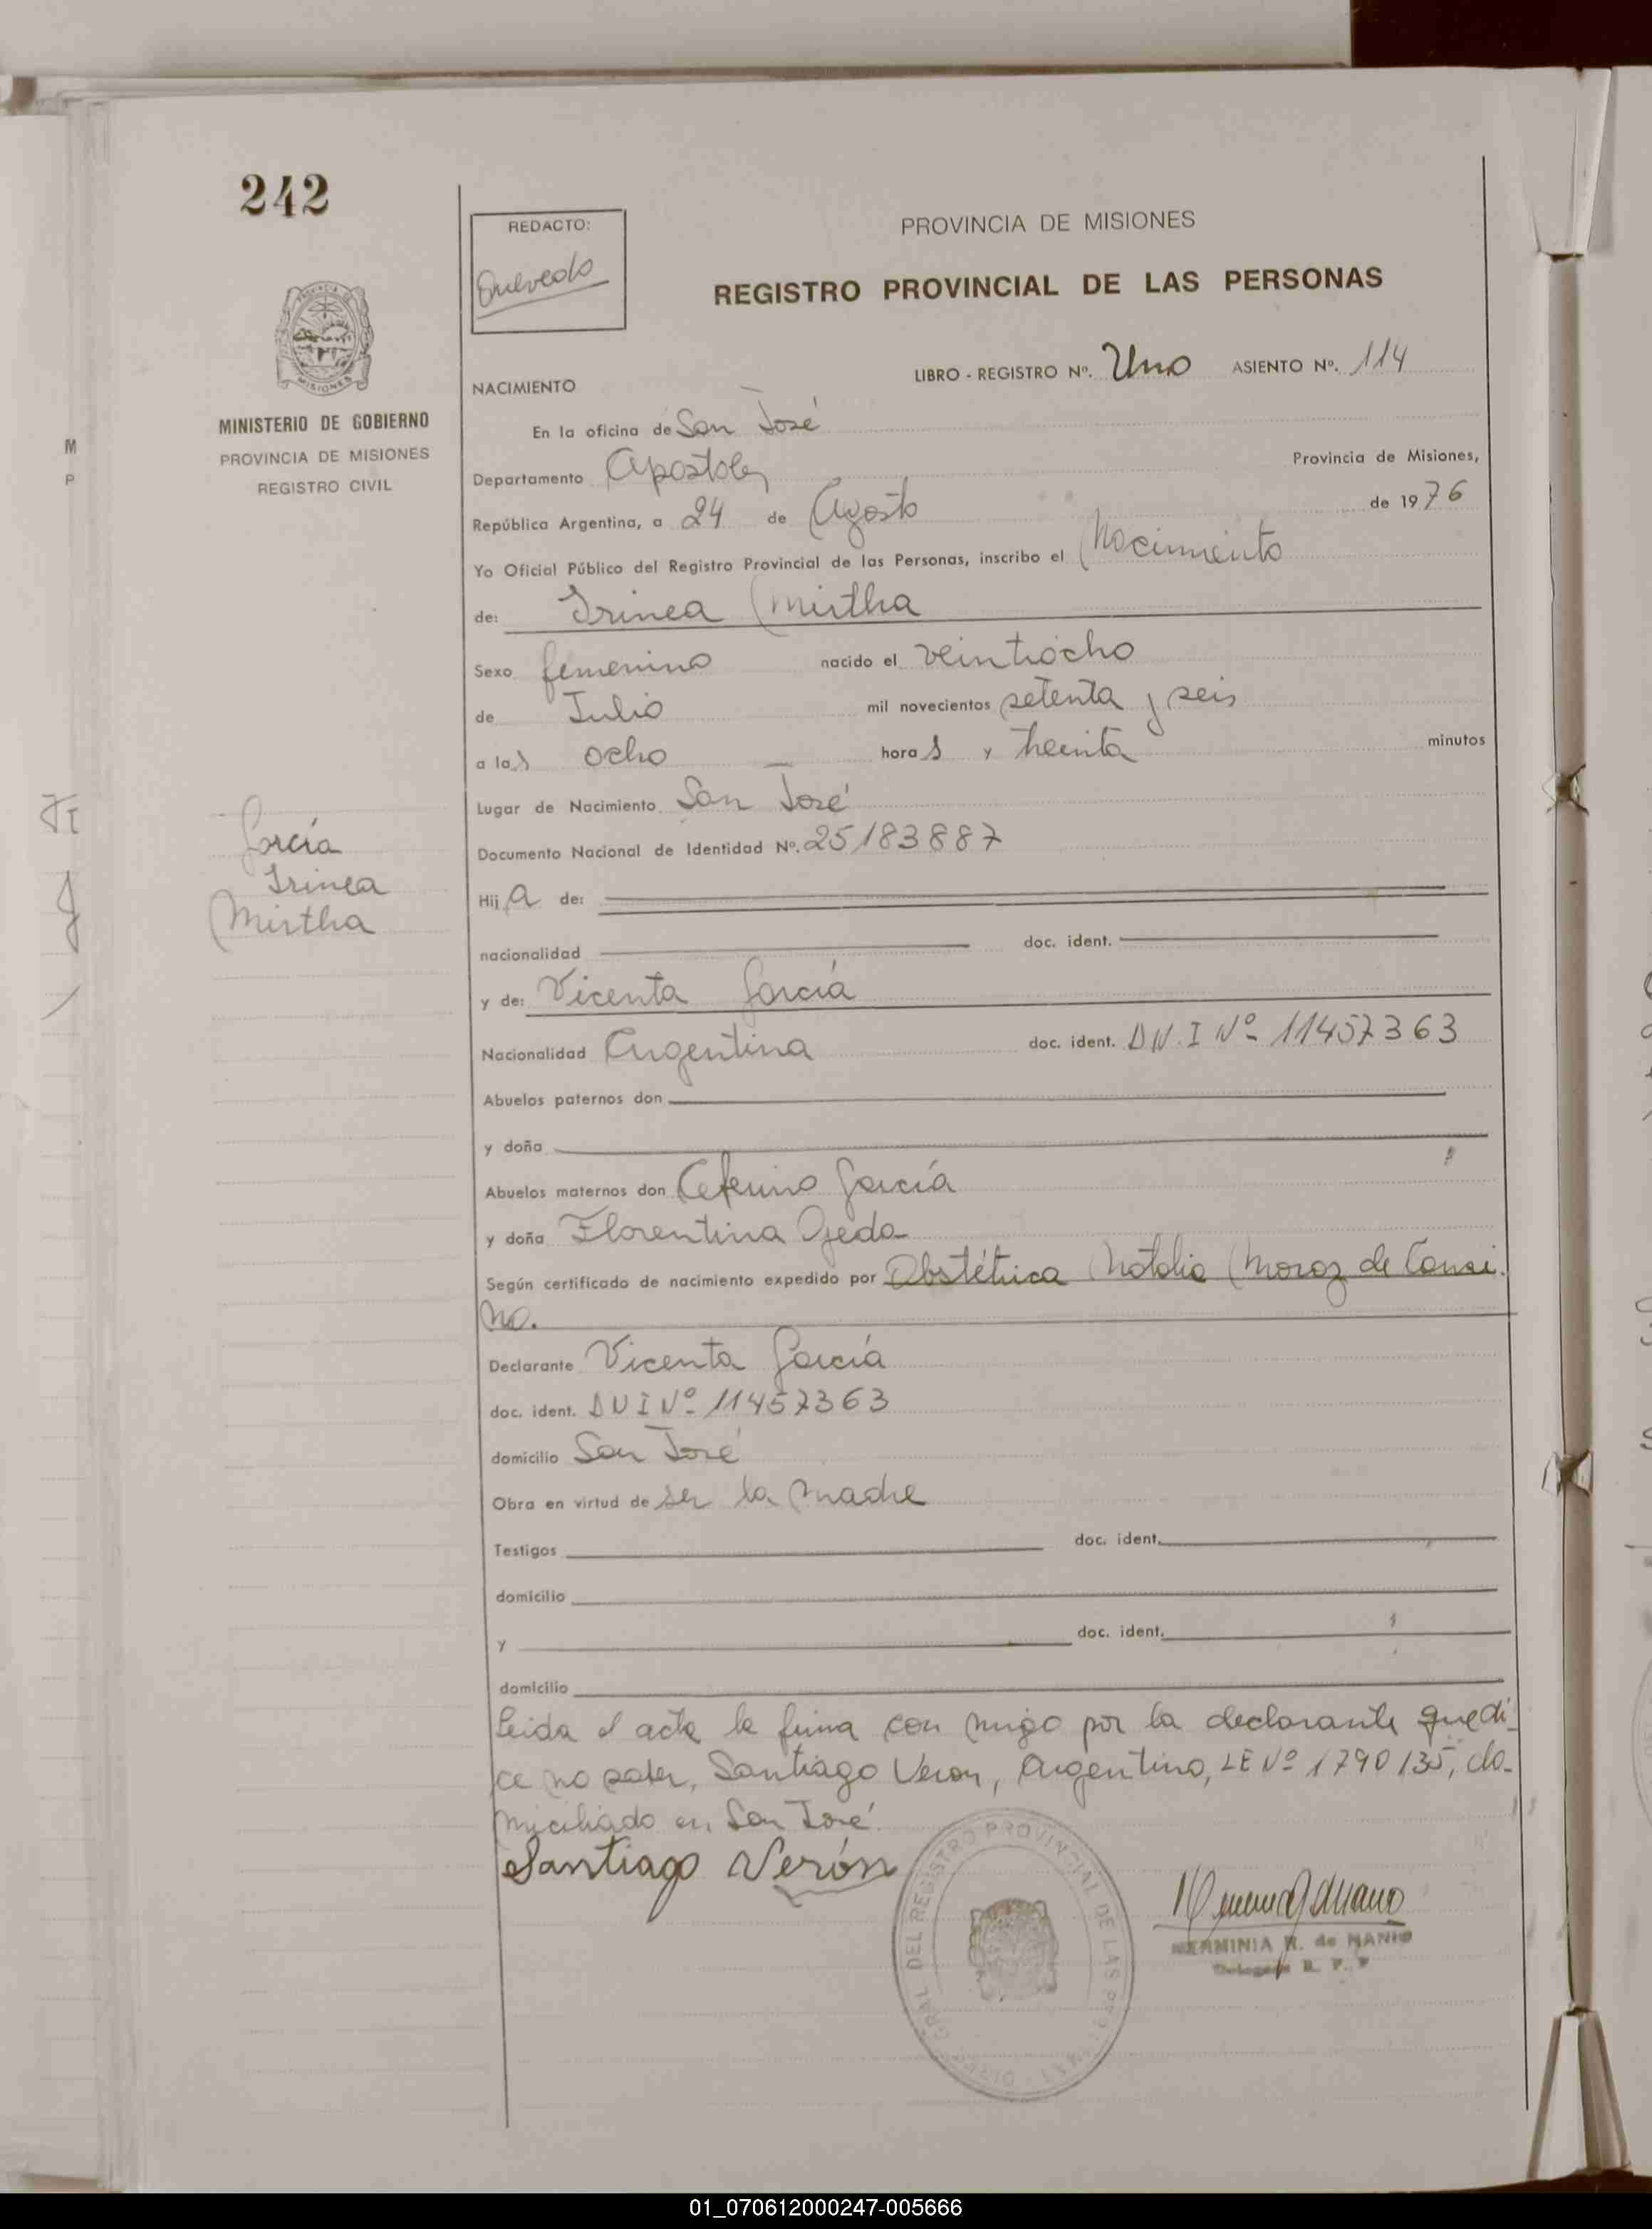 242
REDACTO:
Quevedo
PROVINCIA DE MISIONES
REGISTRO PROVINCIAL DE LAS PERSONAS
MINISTERIO DE GOBIERNO
PROVINCIA DE MISIONES
REGISTRO CIVIL
LIBRO - REGISTRO Nº. Uno ASIENTO Nº. 114
NACIMIENTO
En la oficina de San José
Departamento Apostoles Provincia de Misiones,
República Argentina, a 24 de Agosto de 1976
Yo Oficial Público del Registro Provincial de las Personas, inscribo el Nacimiento
de: Irinea Mirtha
Sexo femenino nacido el veintiocho
de Julio mil novecientos setenta y seis
a las ocho horas y treinta minutos
Lugar de Nacimiento San José
García
Irinea
Mirtha
Documento Nacional de Identidad Nº. 25183887
Hija de:
nacionalidad doc. ident.
y de: Vicenta García
Nacionalidad Argentina doc. ident. DN.I Nº 11457363
Abuelos paternos don
y doña
Abuelos maternos don Ceferino García
y doña Florentina Ojeda
Según certificado de nacimiento expedido por Obstétrica Natalia Moroz de
no.
Declarante Vicenta García
doc. ident. DNI Nº 11457363
domicilio San José
Obra en virtud de ser la madre
Testigos doc. ident.
domicilio
y doc. ident.
domicilio
Leida el acta la firma con migo por la declarante que di-
ce no saber, Santiago Veron, Argentino, LE Nº 1790135, do-
miciliado en San José.
Santiago Verón
HERMINIA R. de
DEL REGISTRO PROVINCIAL DE LAS
01_070612000247-005666